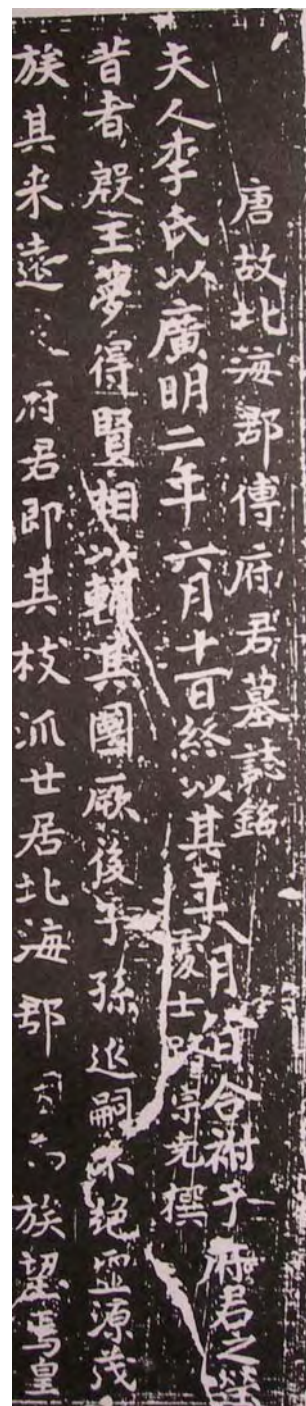 唐故北海郡傅府君墓誌銘
夫人李氏以廣明二年六月十一日終以其年八月日合祔于府君之塋
士路宗撰
昔者殷王夢得賢相以輔其國厥後子孫延嗣不絕靈源茂
族其来遠府君即其枝派廿居北海郡因為族望焉皇